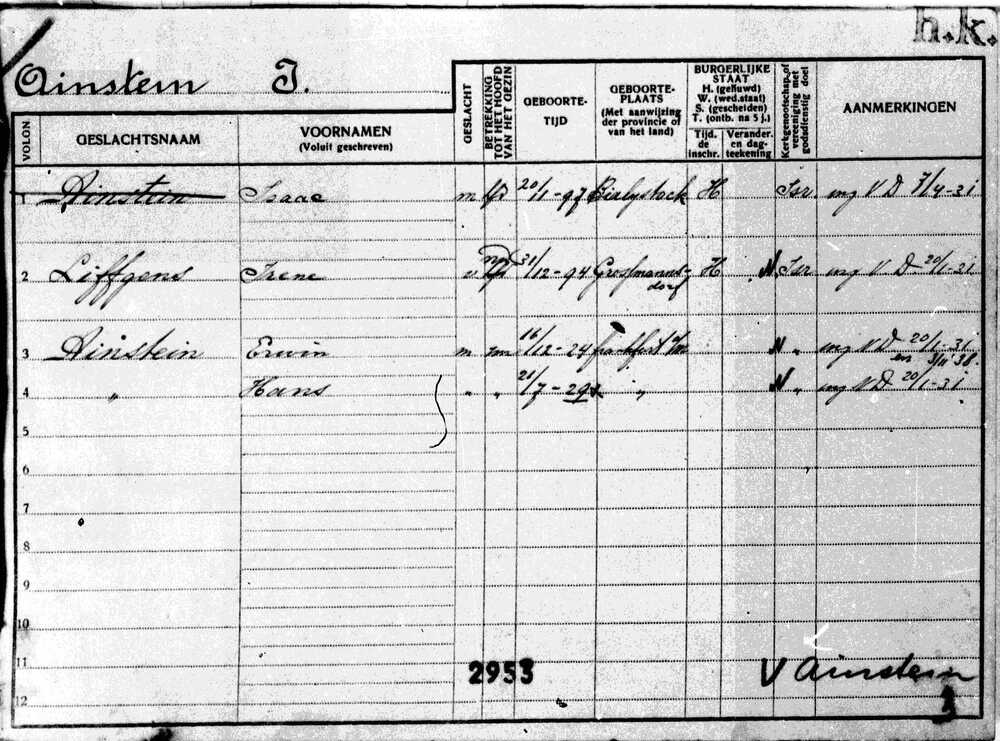 h.k.
Ainstein I.
VOLGN. GESLACHTSNAAM VOORNAMEN (Voluit geschreven) GESLACHT BETREKKING TOT HET HOOFD VAN HET GEZIN GEBOORTE-TIJD GEBOORTE-PLAATS (Met aanwijzing der provincie of van het land) BURGERLIJKE STAAT H. (gehuwd) W. (wed.staat) S. (gescheiden) T. (ontb. na 5 j.) Tijd. de inschr. Verander. en dag-teekening Kerkgenootschap of vereeniging met godsdienstig doel AANMERKINGEN
1 Ainstein Isaac m 20/1-97 Bialystock H Isr mg V D 7/4-31
2 Liffgens Irene v 31/12-94 Grossmannsdorf H N Isr mg V D 20/1-31
3 Ainstein Erwin m zn 16/12-24 Frankfurt N " mg V D 20/1-31
en 3/11 38.
4 " Hans " " 21/7-29 " N " mg V D 20/1-31
5
6
7
8
9
10
11 2953 V Ainstein
12 3